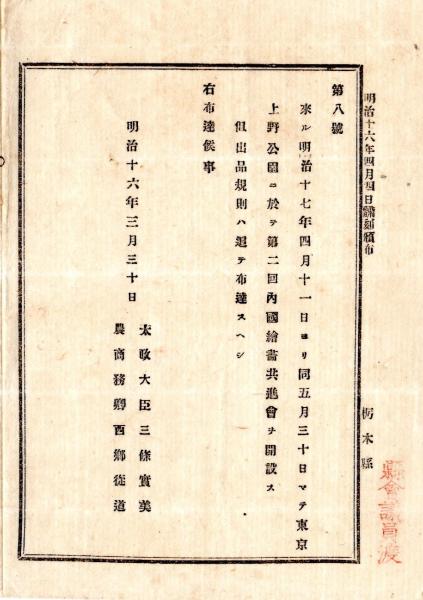 明治十六年四月四日飜刻頒布
栃木縣
縣會議員渡
第八號
來ル明治十七年四月十一日ヨリ同五月三十日マテ東京
上野公園ニ於テ第二回內國繪畵共進會ヲ開設ス
但出品規則ハ追テ布達スヘシ
右布達候事
明治十六年三月三十日
太政大臣三條實美
農商務卿西鄉從道